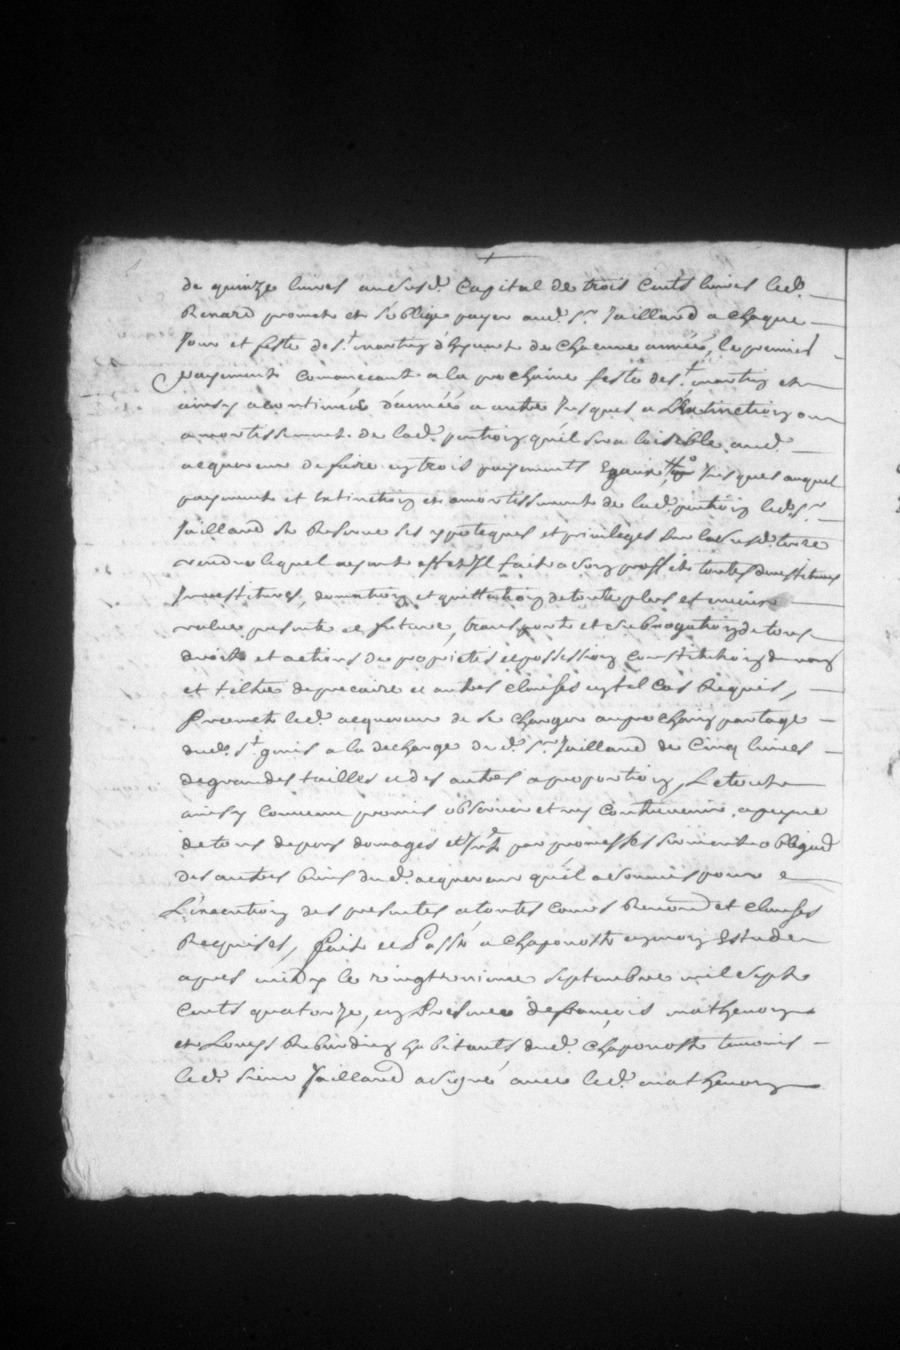 de quinze livres au susd. Capital de trois Cents livres led.
Renard promet et s'oblige payer aud. Sr. Jailland a chaque
Jour et feste de St. martin d'hyvert de Chacune année, le premier
payement comancant a la prochaine feste de St. martin et
ainsy a continüer d'année a autre Jusques a L'extinction ou
amortissement de lad. pention qu'il sera loisible aud.
acquereur de faire en trois payements Egaux Jusques auquel
payement et Extinction et amortissement de lad. pention led. Sr.
Jailland se Reserve ses ypoteques et privileges sur la susd. terre
vendue lequel ayant effet Il fait a son proffit toutes devestitures
Investitures, donation et quittation de toute plus et moins
value presente et future, transport et subrogation de tous
droits et actions de proprietés et possession Constitution de nom
et tiltre de precaire et autres clauses en tel Cas Requis,
Promet led. acquereur de se charger au prochain partage
dud. St. genis a la decharge dud. Sr. Jailland de Cinq livres
de grandes tailles et des autres a proportion, Le tout
ainsy convenu promis observer et ny Contrevenir a peyne
de tous depens domages et Intts. par promesses serment obligaon
des autres biens dud. acquereur qu'il a soumis pour
L'execution des presentes a toutes Cours Renond et clauses
Requises, fait et Passé a chaponost en mon Estude
apres midy le vingt septembre mil sept
Cents quatorze, en Presence de françois mathevon
et Louys habitants dud. Chaponost temoins
led. sieur Jailland a signé avec led. mathevon